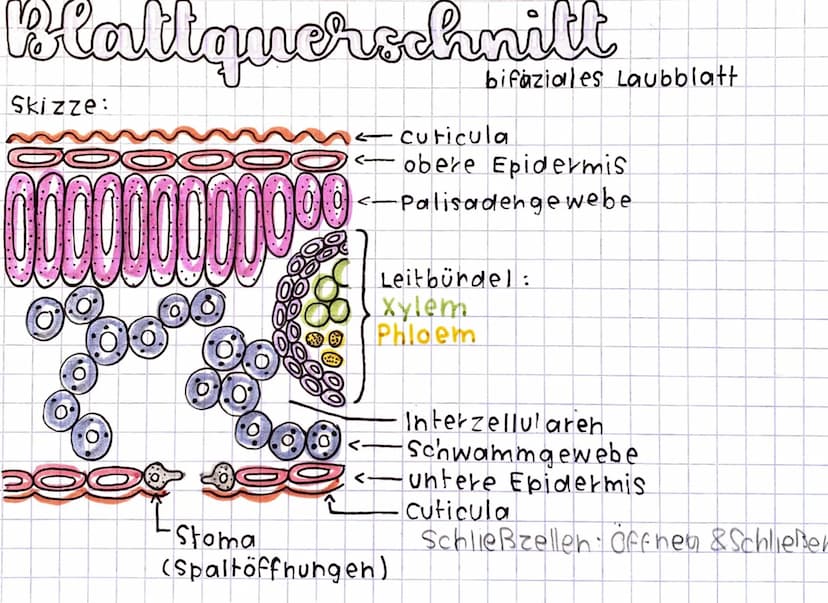 Blattquerschnitt
bifaziales Laubblatt
Skizze:
cuticula
obere Epidermis
Palisadengewebe
Leitbündel:
Xylem
Phloem
Interzellularen
Schwammgewebe
untere Epidermis
cuticula
Schließzellen: Öffnen & Schließen
Stoma
(Spaltöffnungen)